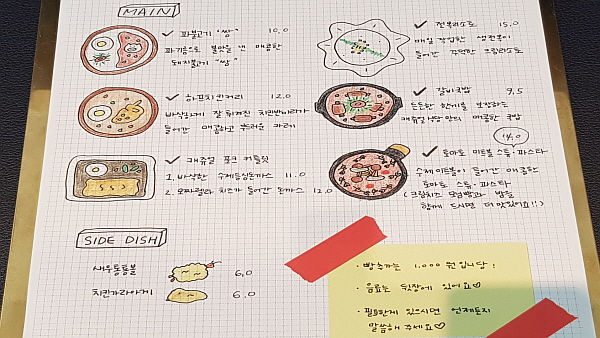 MAIN
✓ 파불고기 "쌈" 10,0
파기름으로 불맛을 낸 매콤한
돼지불고기 "쌈"
✓ 하프치킨커리 12.0
바삭하게 잘 튀겨진 치킨반마리가
들어간 매콤하고 부드러운 카레
✓ 캐쥬얼 포크 커틀릿
1. 바삭한 수제등심돈까스 11.0
2. 모짜렐라 치즈가 들어간 돈까스 12.0
✓ 전복리소토 15.0
매일 작업한 생전복이
들어간 진한 크림리소토
✓ 갈비국밥 9,5
든든한 한끼를 보장하는
캐쥬얼식당만의 매콤한 국밥
14.0
✓ 토마토 미트볼 스튜. 파스타
수제미트볼이 들어간 매콤한
토마토 스튜. 파스타
(크림치즈 모닝빵과 밥을
함께 드시면 더 맛있어요!!)
SIDE DISH
새우퐁퐁볼 6,0
치킨가라아게 6,0
· 빵추가는 1,000원입니당!
· 음료는 뒷장에 있어요♡
· 필요한게 있으시면 언제든지
말씀해주세요♡